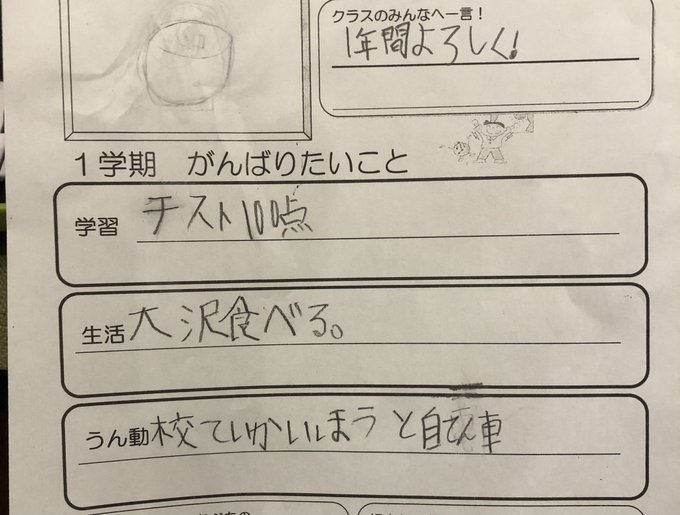 クラスのみんなへ一言!
1年間よろしく!
1学期 がんばりたいこと
学習 テスト100点
生活 大沢食べる。
うん動 校ていかいほうと自てん車